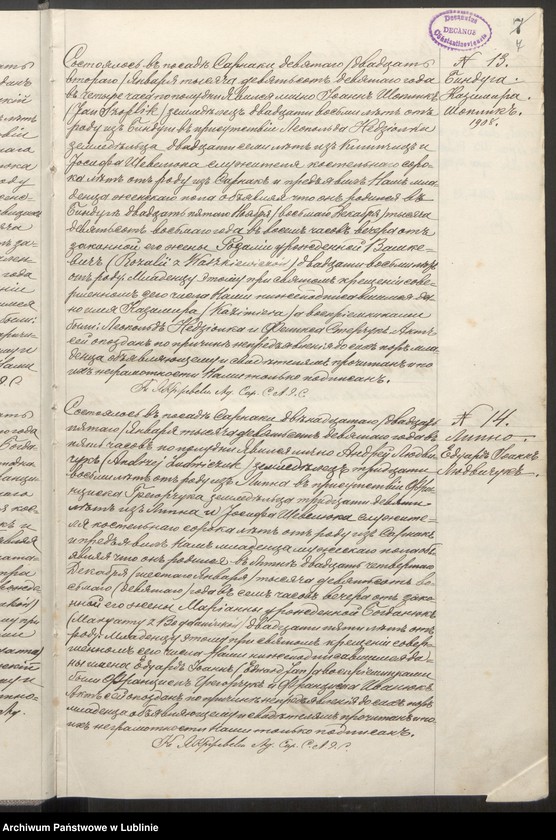 Decanatus
DECANUS
Constantinoviensis
7
4
N 13.
Биндуга.
Казимира
Шопликъ.
1908.
Состоялось въ посадѣ Сарнаки девятаго /двадцать
втораго/ Января тысяча девятьсотъ девятаго года
въ четыре часа по полудни. Явился лично Іоаннъ Шопликъ
/Jan Szoplik/, земледѣлецъ двадцати восьми лѣтъ отъ
роду изъ Биндуги въ присутствіи Леопольда Недзіолки
земледѣльца двадцати семи лѣтъ изъ и
Іосифа Шевелюка служителя костельнаго соро-
ка лѣтъ отъ роду изъ Сарнакъ и предъявилъ Намъ мла-
денца женскаго пола объявляя что онъ родился въ
Биндугѣ двадцать пятаго Ноября /восьмаго Декабря/ тысяча
девятьсотъ восьмаго года въ восемь часовъ вечера отъ
законной его жены Розаліи урожденной Вашке-
вичъ /Rozalii z Waszkiewiczów/ двадцати восьми лѣтъ
отъ роду. Младенцу этому при святомъ крещеніи совер-
шенномъ сего числа Нами нижеподписавшимся да-
но имя Казимира /Kazimiera/ а воспріемниками
были: Леопольдъ Недзіолка и Актъ
сей опозданъ по причинѣ непредъявленія до сихъ поръ мла-
денца объявляющему и свидѣтелямъ прочитанъ и по
ихъ неграмотности Нами только подписанъ.
N 14.
Литно.
Едуардъ Іоаннъ
Людвичукъ.
Состоялось въ посадѣ Сарнаки двѣнадцатаго /двадцать
пятаго/ Января тысяча девятьсотъ девятаго года въ
пять часовъ по полудни. Явился лично Андрей Людви-
чукъ /Andrzej Ludwiczuk/ земледѣлецъ тридцати
восьми лѣтъ отъ роду изъ Литна въ присутствіи Фран-
циска Грегорчука земледѣльца тридцати девяти
лѣтъ изъ Литна и Іосифа Шевелюка служите-
ля костельнаго сорока лѣтъ отъ роду изъ Сарнакъ
и предъявилъ Намъ младенца мужескаго пола объ-
являя что онъ родился въ Литнѣ двадцать четвертаго
Декабря /шестаго Января/ тысяча девятьсотъ во-
сьмаго /девятаго/ года въ семь часовъ вечера отъ зако-
нной его жены Маріанны урожденной
двадцати пяти лѣтъ отъ
роду. Младенцу этому при святомъ крещеніи совер-
шенномъ сего числа Нами нижеподписавшимся да-
ны имена Едуардъ Іоаннъ /Edward Jan/ а воспріемниками
были Францискъ Грегорчукъ и Франциска Иванюкъ.
Актъ сей опозданъ по причинѣ непредъявленія до сихъ поръ
младенца объявляющему и свидѣтелямъ прочитанъ и по
ихъ неграмотности Нами только подписанъ.
Archiwum Państwowe w Lublinie